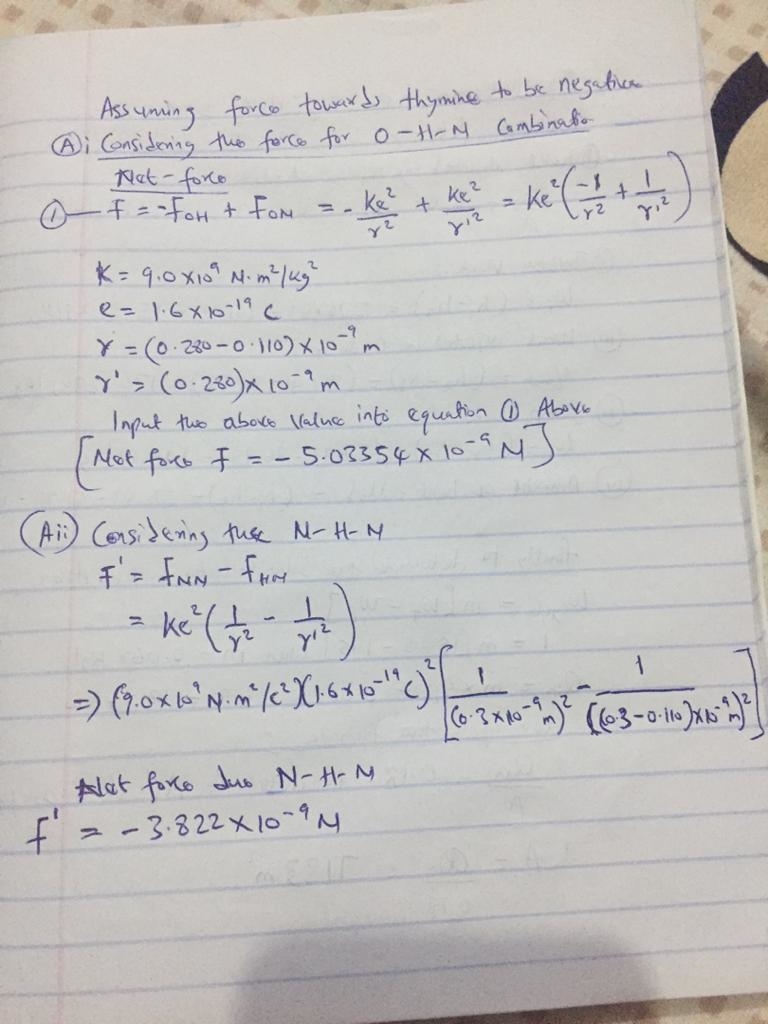 Assuming force towards thymine to be negative
(A)i Considering the force for O-H-N Combination
Net-force
(1) — F = -F_OH + F_ON = - Ke²/r² + Ke²/r'² = Ke²(-1/r² + 1/r'²)
K = 9.0 x10⁹ N.m²/kg²
e = 1.6 x 10⁻¹⁹ C
r = (0.280-0.110) x 10⁻⁹ m
r' = (0.280)x 10⁻⁹ m
Input the above value into equation (1) Above
[Net force F = - 5.03354 x 10⁻⁹ N]
(Aii) Considering the N-H-N
F' = F_NN - F_HN
= Ke²(1/r² - 1/r'²)
=> (9.0x10⁹ N.m²/c²)(1.6x10⁻¹⁹ C)²[1/(0.3x10⁻⁹m)² - 1/((0.3-0.110)x10⁻⁹m)²]
Net force due N-H-N
F' = -3.822 x10⁻⁹ N